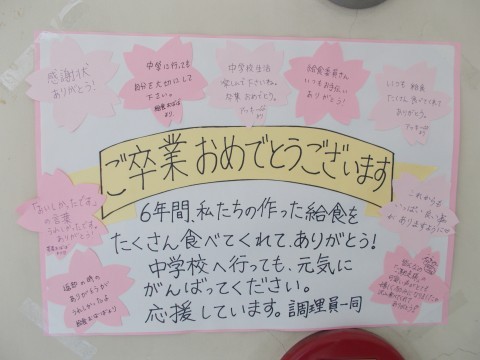 感謝状
ありがとう!
中学に行っても
自分を大切にして
下さい。
中学校生活
楽しんで下さいね。
卒業おめでとう。
給食委員さん
いつもお手伝い
ありがとう!
いつも給食
たくさん食べてくれて
ありがとう。
ご卒業おめでとうございます
「おいしかったです」
の言葉
うれしかったです。
ありがとう!
これからも
いっぱい良い事が
ありますように
6年間、私たちの作った給食を
たくさん食べてくれて、ありがとう!
中学校へ行っても、元気に
がんばってください。
応援しています。調理員一同
返却の時の
ありがとうが
うれしかったよ